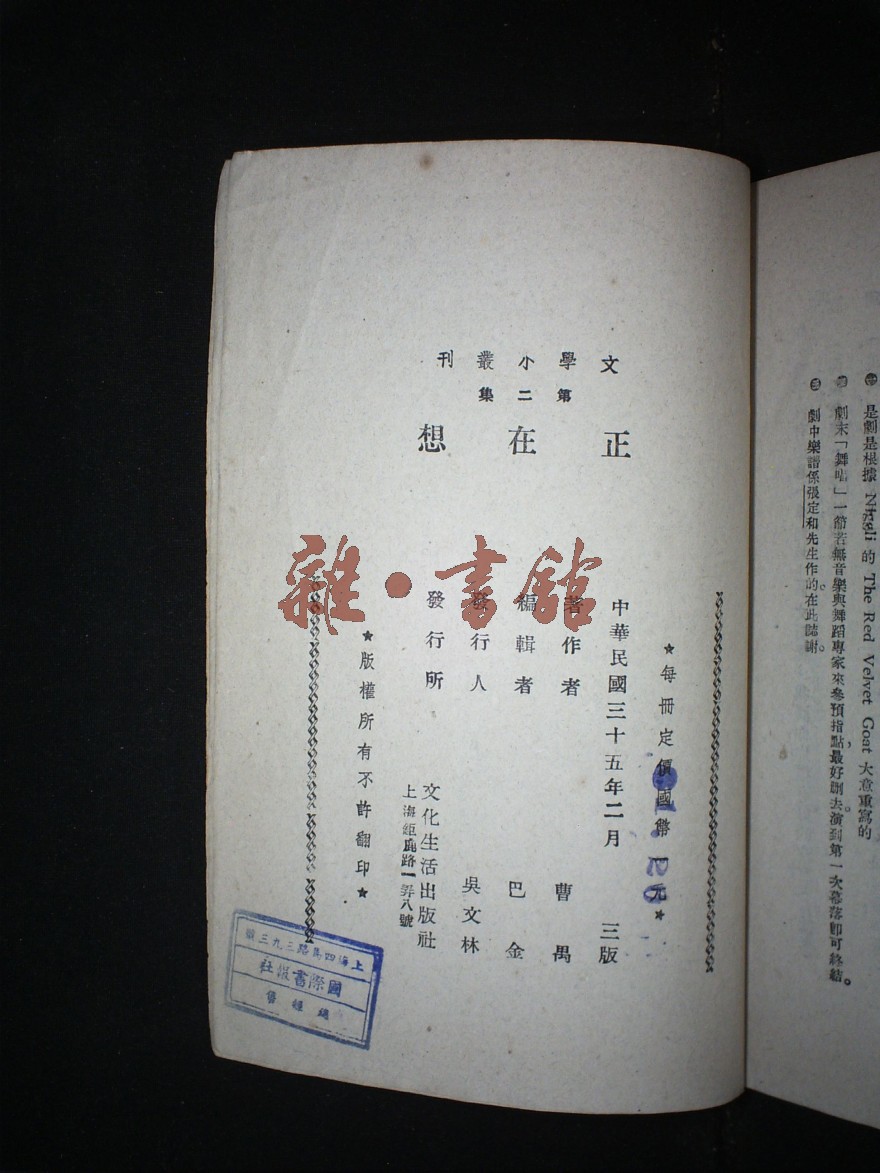 文學小叢刊
第二集
正在想
★每冊定價國幣一元★
中華民國三十五年二月 三版
著作者 曹禺
編輯者 巴金
發行人 吳文林
發行所 文化生活出版社
上海鉅鹿路一弄八號
★版權所有不許翻印★
雜·書館
上海四馬路三九三號
國際書報社
經售
是劇是根據 的 The Red Velvet Goat 大意重寫的
劇末「舞唱」一節若無音樂與舞蹈專家來參預指點，最好刪去。演到第一次幕落即可終結。
劇中樂譜係張定和先生作的在此誌謝。